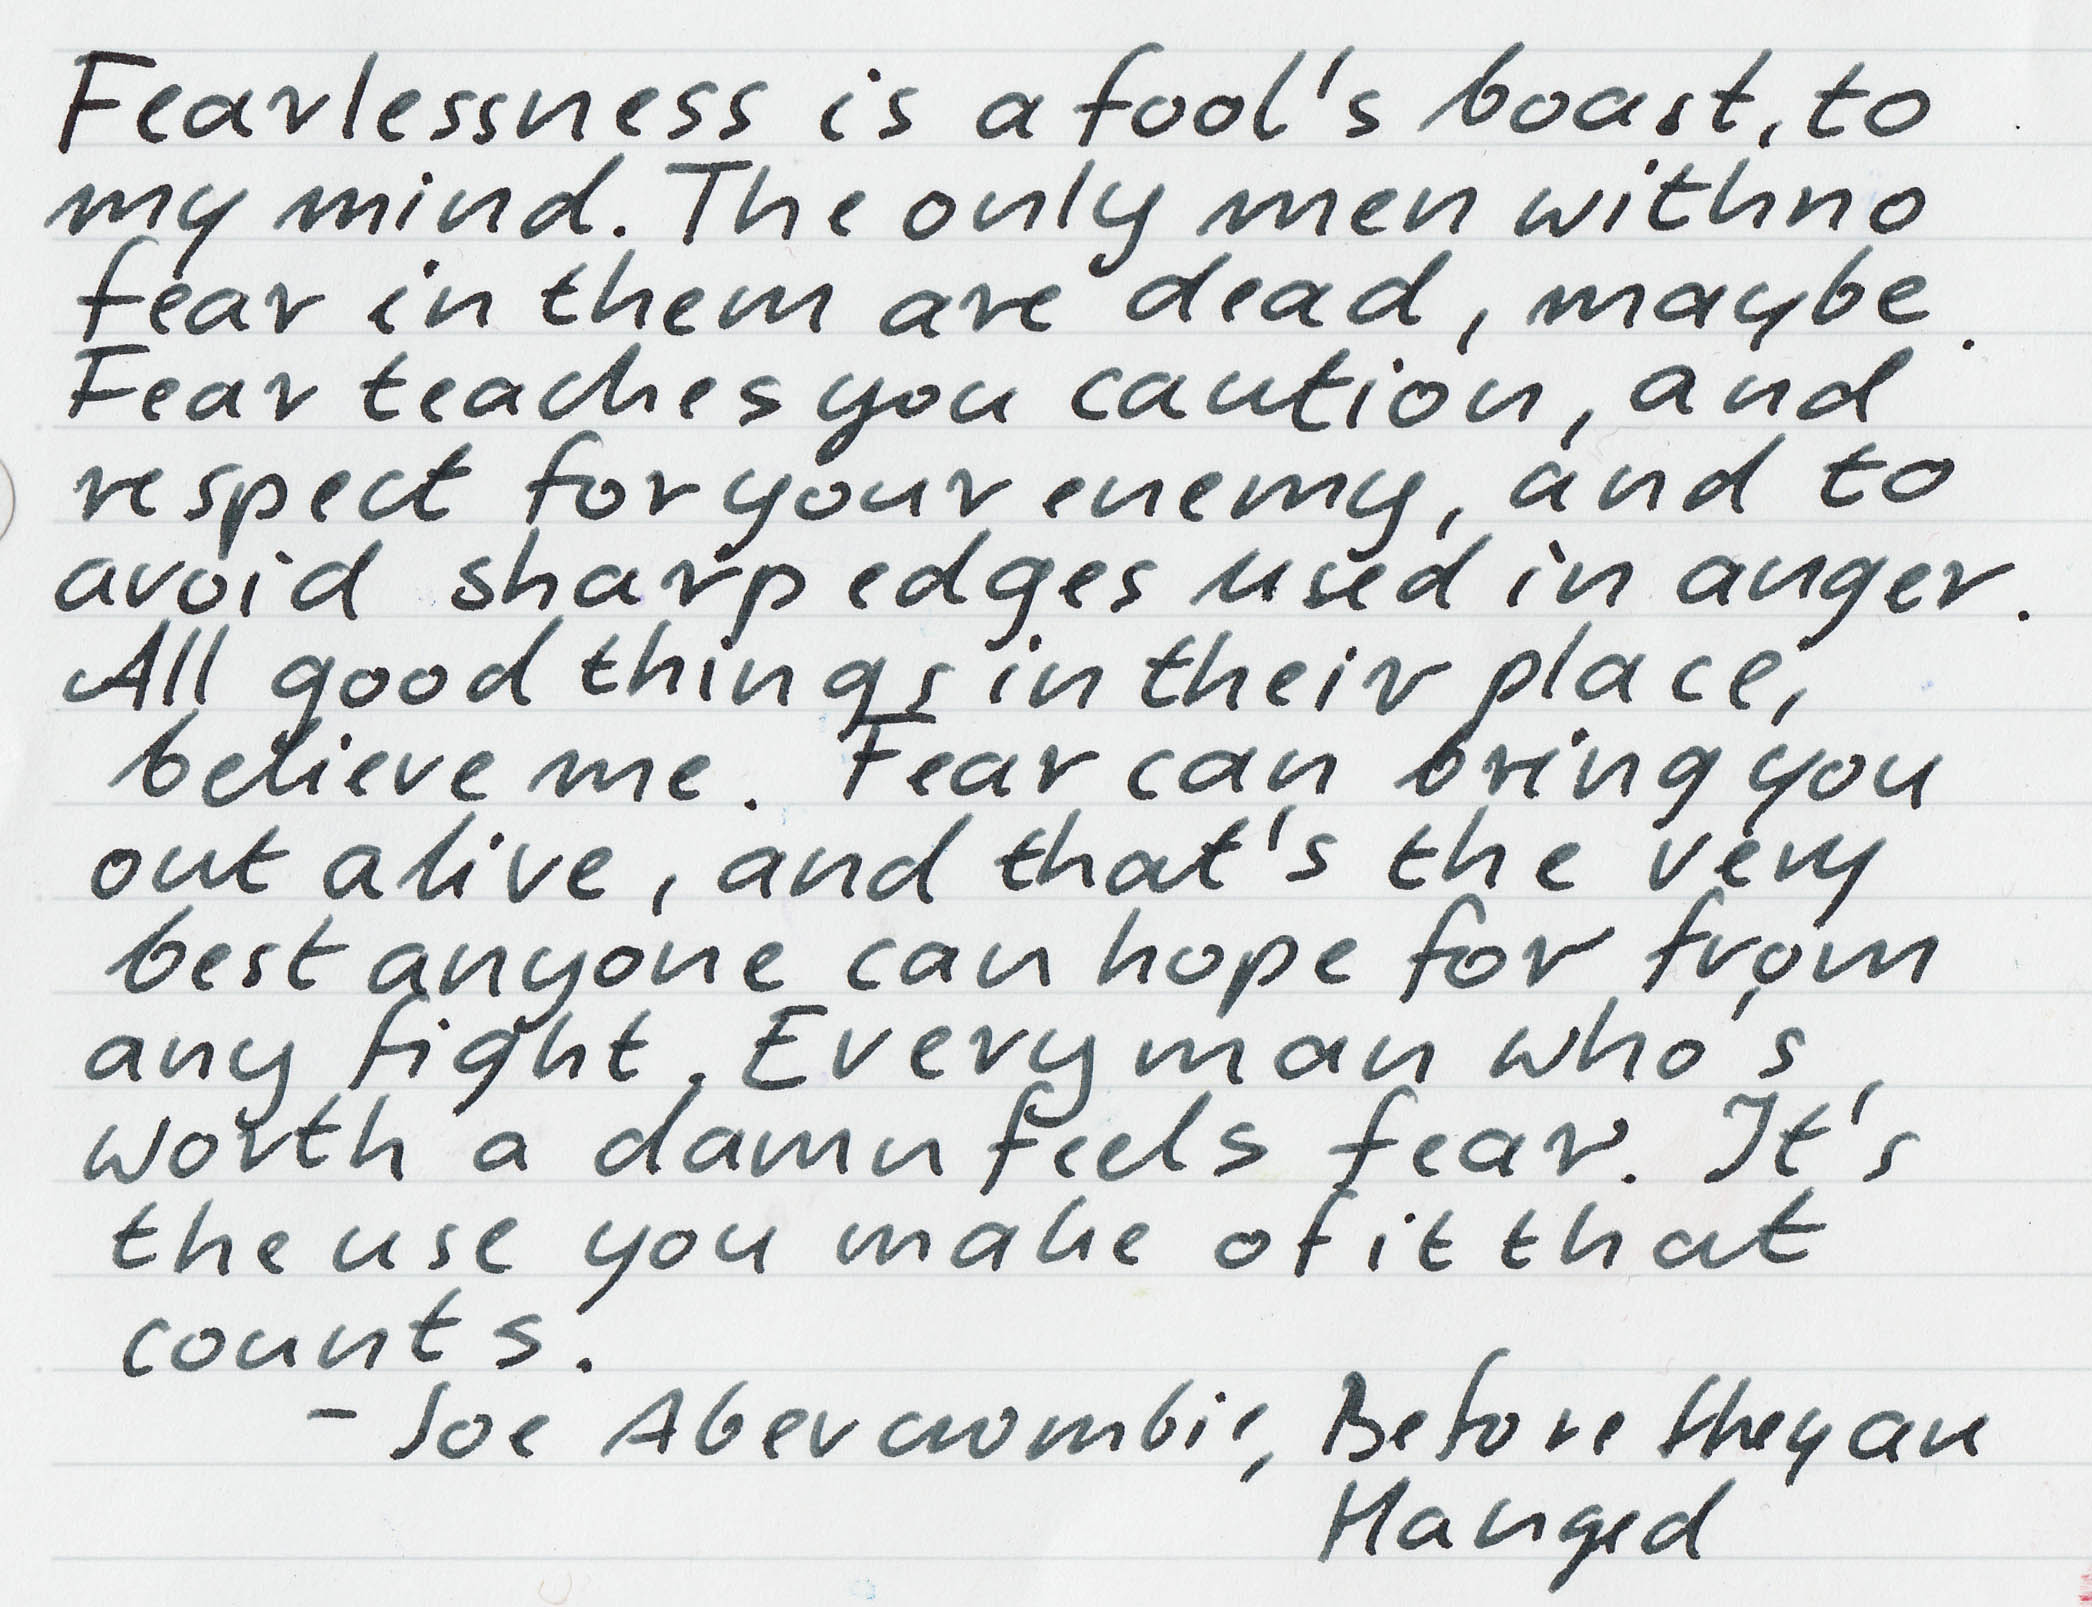 Fearlessness is a fool's boast, to
my mind. The only men with no
fear in them are dead, maybe.
Fear teaches you caution, and
respect for your enemy, and to
avoid sharp edges used in anger.
All good things in their place,
believe me. Fear can bring you
out alive, and that's the very
best anyone can hope for from
any fight. Every man who's
worth a damn feels fear. It's
the use you make of it that
counts.
- Joe Abercrombie, Before they are
Hanged